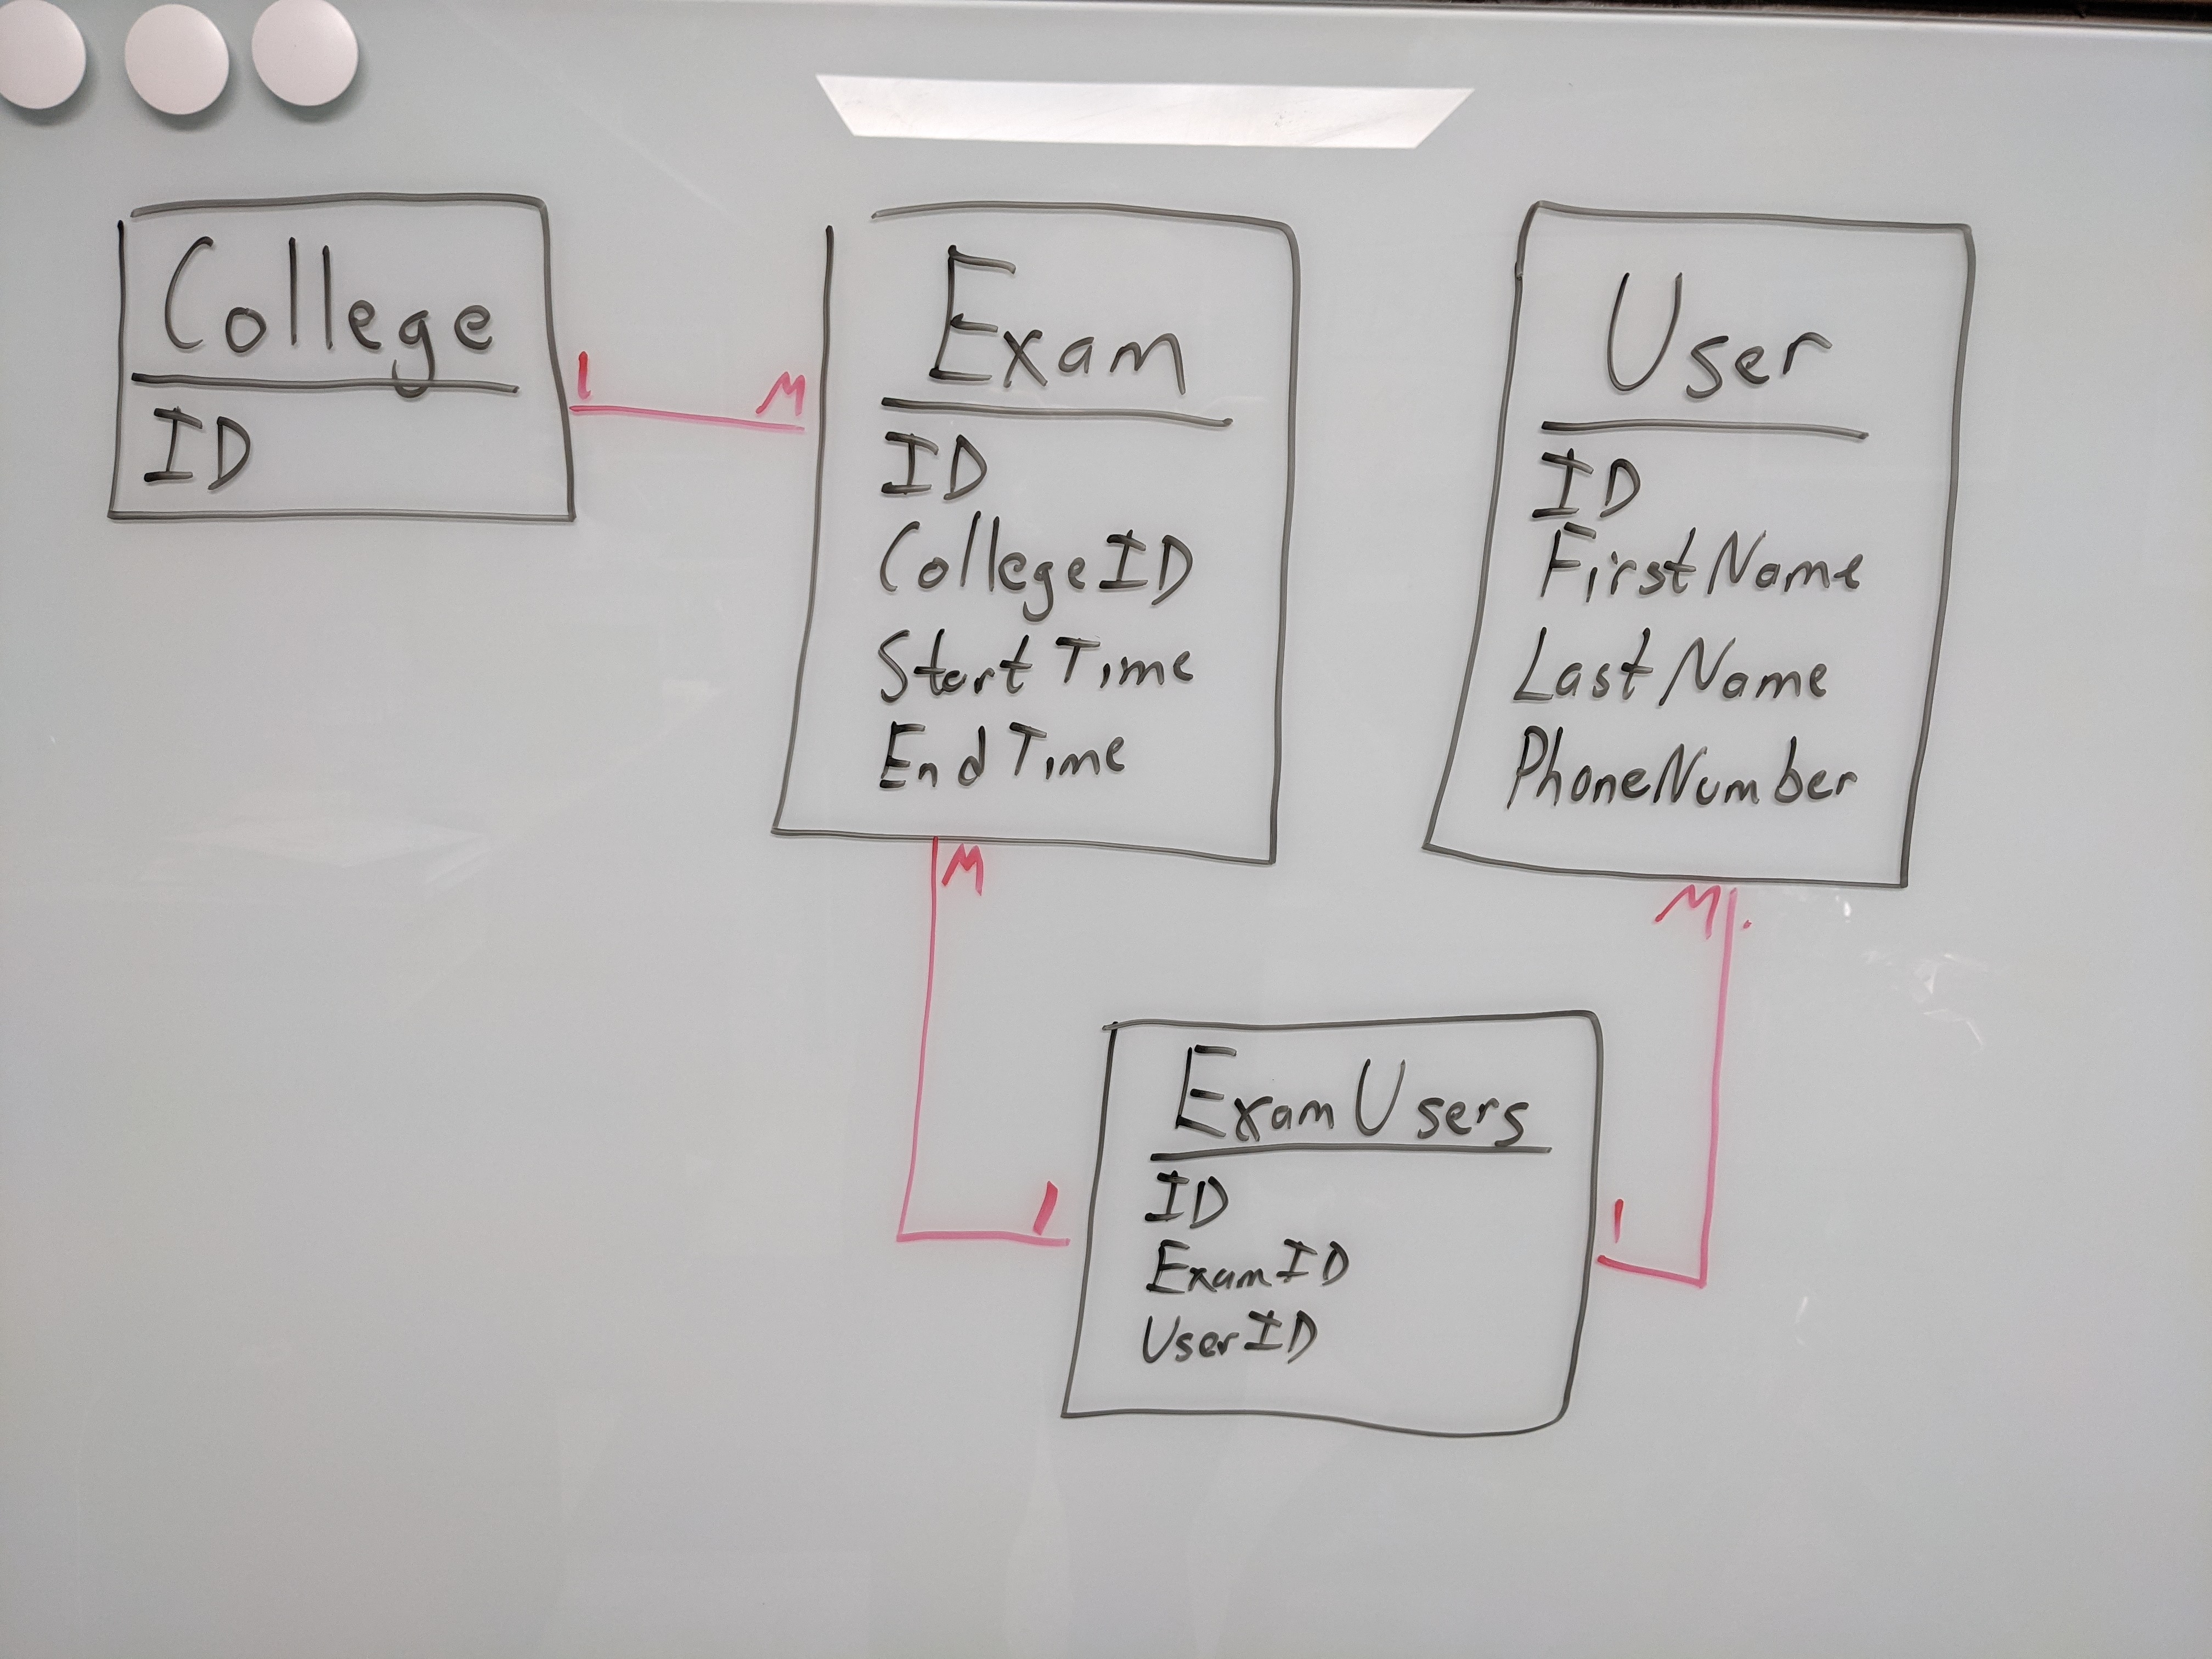 College
ID
1 M
Exam
ID
CollegeID
StartTime
EndTime
User
ID
FirstName
LastName
PhoneNumber
M
1
M
1
ExamUsers
ID
ExamID
UserID